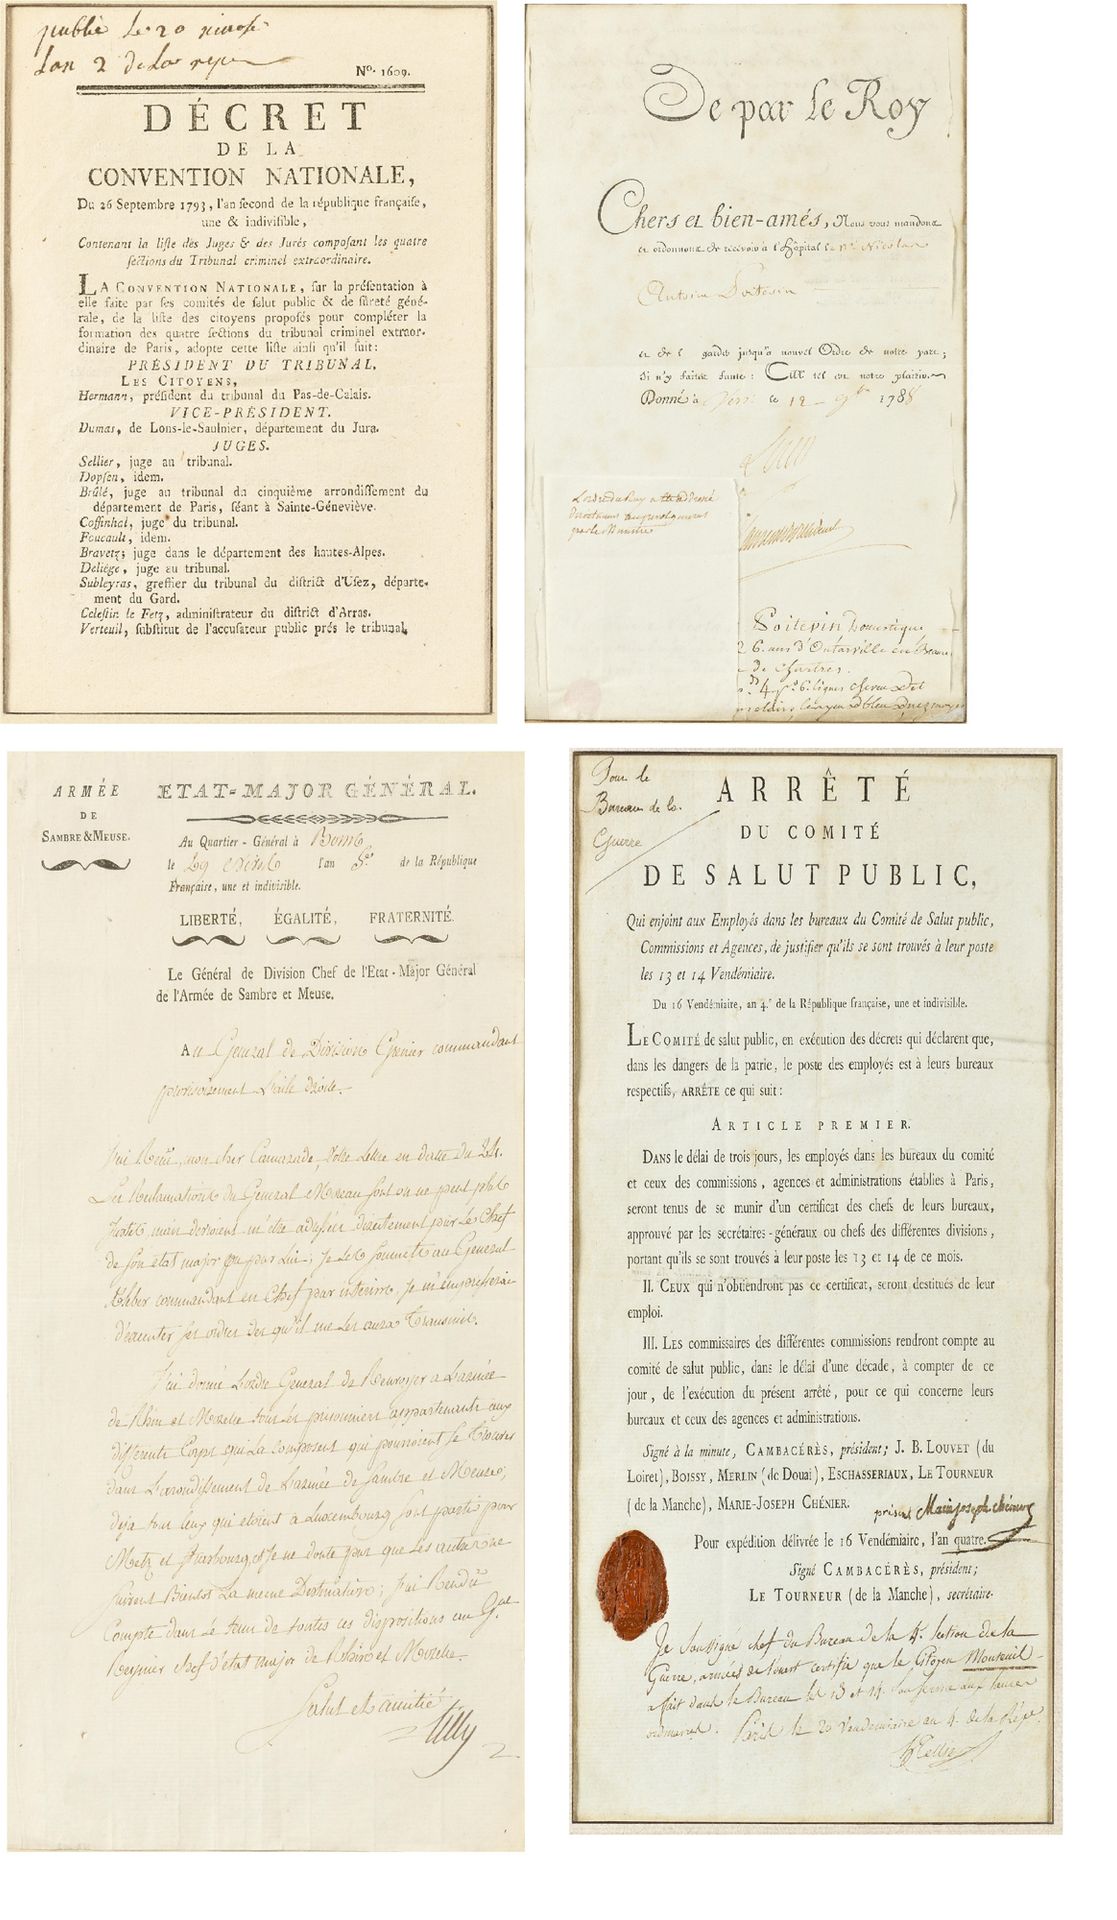 publié le 20 nivose
Lan 2 de La repu
Nº. 1609.
DÉCRET
DE LA
CONVENTION NATIONALE,
Du 26 Septembre 1793, l'an second de la république française,
une & indivisible,
Contenant la liste des Juges & des Jurés composant les quatre
sections du Tribunal criminel extraordinaire.
LA CONVENTION NATIONALE, sur la présentation à
elle faite par ses comités de salut public & de sûreté géné-
rale, de la liste des citoyens proposés pour compléter la
formation des quatre sections du tribunal criminel extraor-
dinaire de Paris, adopte cette liste ainsi qu'il suit:
PRÉSIDENT DU TRIBUNAL.
LES CITOYENS,
Hermann, président du tribunal du Pas-de-Calais.
VICE-PRÉSIDENT.
Dumas, de Lons-le-Saulnier, département du Jura.
JUGES.
Sellier, juge au tribunal.
Dopsen, idem.
Brûlé, juge au tribunal du cinquième arrondissement du
département de Paris, séant à Sainte-Géneviève.
Coffinhal, juge du tribunal.
Foucault, idem.
Bravetz; juge dans le département des hautes-Alpes.
Deliége, juge au tribunal.
Subleyras, greffier du tribunal du district d'Usez, départe-
ment du Gard.
Celestin le Fetz, administrateur du district d'Arras.
Verteuil, substitut de l'accusateur public prés le tribunal.
De par le Roy
Chers et bien-amés, Nous vous mandons
et ordonnons de recevoir à l'hôpital le né Nicolas
Antoine Poitevin
et de l garder jusqu'à nouvel Ordre de notre part;
Si n'y faites faute: Car tel est notre plaisir.
Donné à Vers. le 12 9bre 1788
L'ordre du Roy a été adressé
par le Ministre
Poitevin Domestique
26. ans d'Outarville en Beauce
de Chartres.
4 ps 6. lignes cheveu
ARMÉE
DE
SAMBRE & MEUSE.
ETAT-MAJOR GÉNÉRAL.
Au Quartier-Général à Bonn
le 29 l'an 5e de la République
Française, une et indivisible.
LIBERTÉ, ÉGALITÉ, FRATERNITÉ.
Le Général de Division Chef de l'Etat-Major Général
de l'Armée de Sambre et Meuse,
Au General de Division Grenier commandant
provisoirement L'aile droite.
J'ai Reçu, mon cher Camarade, Votre Lettre en date du 24.
Les Reclamations du General Moreau sont on ne peut plus
justes, mais devroient m'être adressées directement par Le Chef
de son état major ou par Lui; Je les soumets au General
Kleber commandant en Chef par interim. Je m'empresserai
d'executer ses ordres des qu'il me les aura Transmis.
J'ai donné L'ordre General de Renvoyer a L'armée
de Rhin et Mozelle tous les prisonniers appartenants aux
differents Corps qui La composent qui pourroient se trouver
dans L'arrondissement de L'armée de Sambre et Meuse;
deja tous ceux qui etoient a Luxembourg sont partis pour
Metz et Strasbourg, et Je ne doute pas que Les autres ne
suivent Bientot La meme Destination; J'ai Rendu
Compte dans Le tems de toutes ces dispositions au Gal
Reynier chef d'état major de Rhin et Mozelle.
Salut et amitié
Tilly
2
Pour le
Bureau de la
Guerre
ARRÊTÉ
DU COMITÉ
DE SALUT PUBLIC,
Qui enjoint aux Employés dans les bureaux du Comité de Salut public,
Commissions et Agences, de justifier qu'ils se sont trouvés à leur poste
les 13 et 14 Vendémiaire.
Du 16 Vendémiaire, an 4.e de la République française, une et indivisible.
LE COMITÉ de salut public, en exécution des décrets qui déclarent que,
dans les dangers de la patrie, le poste des employés est à leurs bureaux
respectifs, ARRÊTE ce qui suit:
ARTICLE PREMIER.
DANS le délai de trois jours, les employés dans les bureaux du comité
et ceux des commissions, agences et administrations établies à Paris,
seront tenus de se munir d'un certificat des chefs de leurs bureaux,
approuvé par les secrétaires-généraux ou chefs des différentes divisions,
portant qu'ils se sont trouvés à leur poste les 13 et 14 de ce mois.
II. CEUX qui n'obtiendront pas ce certificat, seront destitués de leur
emploi.
III. LES commissaires des différentes commissions rendront compte au
comité de salut public, dans le délai d'une décade, à compter de ce
jour, de l'exécution du présent arrêté, pour ce qui concerne leurs
bureaux et ceux des agences et administrations.
Signé à la minute, CAMBACÉRÈS, président; J. B. LOUVET (du
Loiret), BOISSY, MERLIN (de Douai), ESCHASSERIAUX, LE TOURNEUR
(de la Manche), MARIE-JOSEPH CHÉNIER.
présid Marie joseph chénier
Pour expédition délivrée le 16 Vendémiaire, l'an quatre.
Signé CAMBACÉRÈS, président;
LE TOURNEUR (de la Manche), secrétaire.
Je soussigné chef du Bureau de la 4e section de la
Guerre, armées de l'ouest certifie que le Citoyen Monteuil
a fait dans le Bureau les 13 et 14. son service aux heures
ordinaires. Paris le 20 Vendemiaire an 4. de la Répe.